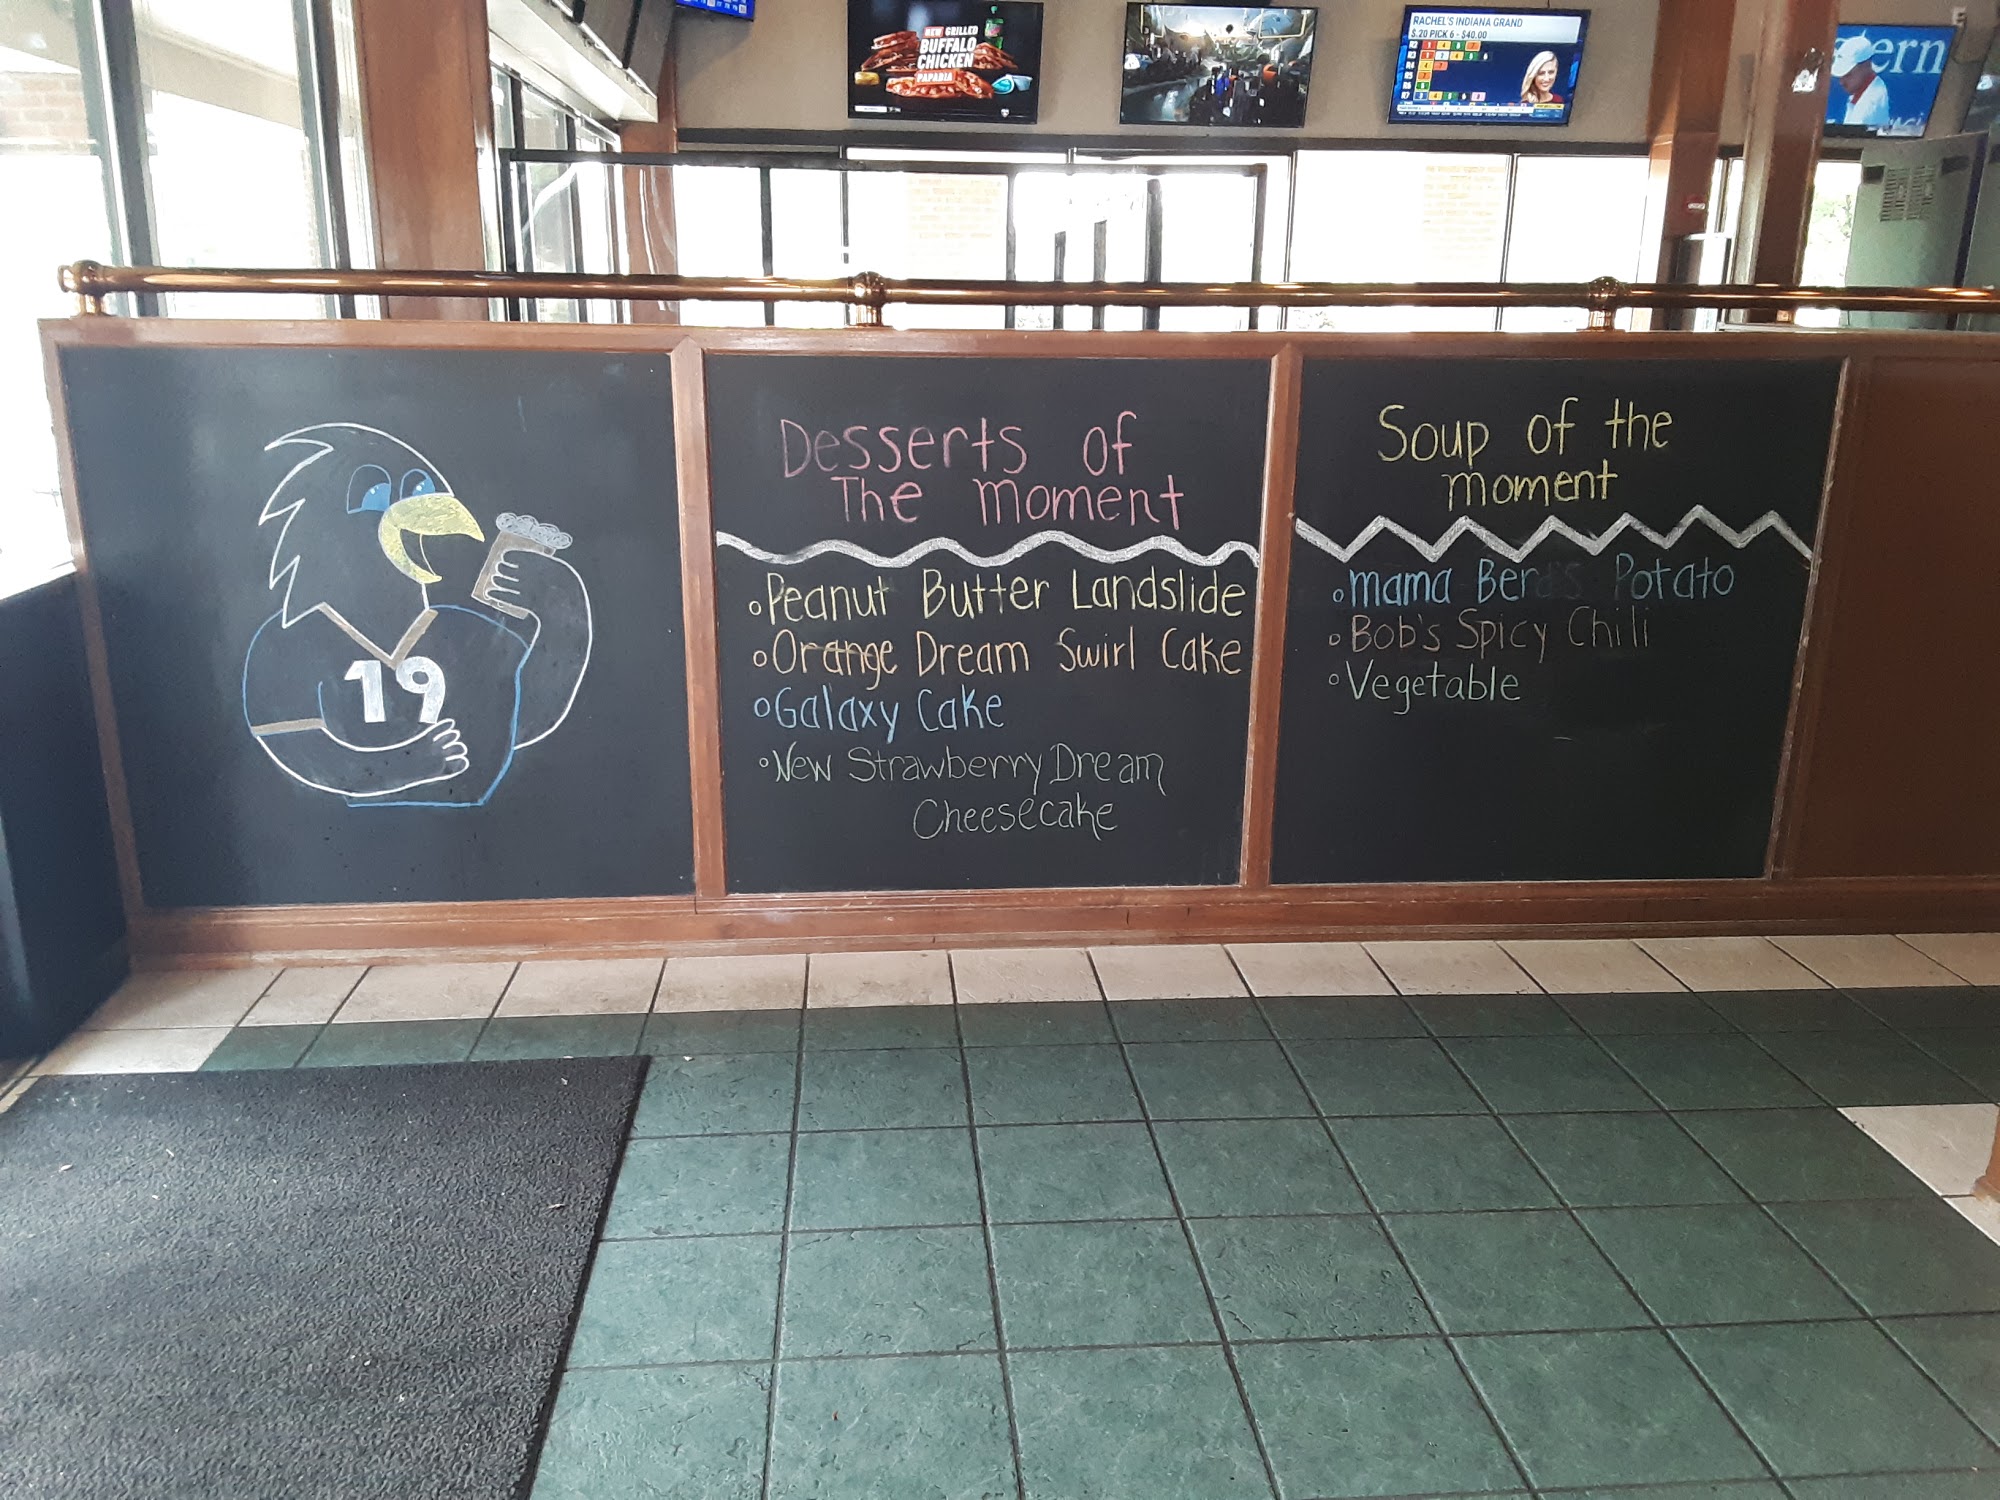 NEW GRILLED
BUFFALO
CHICKEN
PAPADIA
RACHEL'S INDIANA GRAND
$.20 PICK 6 - $40.00
R2
R3
R4
R5
R6
R7
ern
19
Desserts of
The Moment
Peanut Butter Landslide
Orange Dream Swirl Cake
Galaxy Cake
New Strawberry Dream
Cheesecake
Soup of the
Moment
Mama Berd's Potato
Bob's Spicy Chili
Vegetable